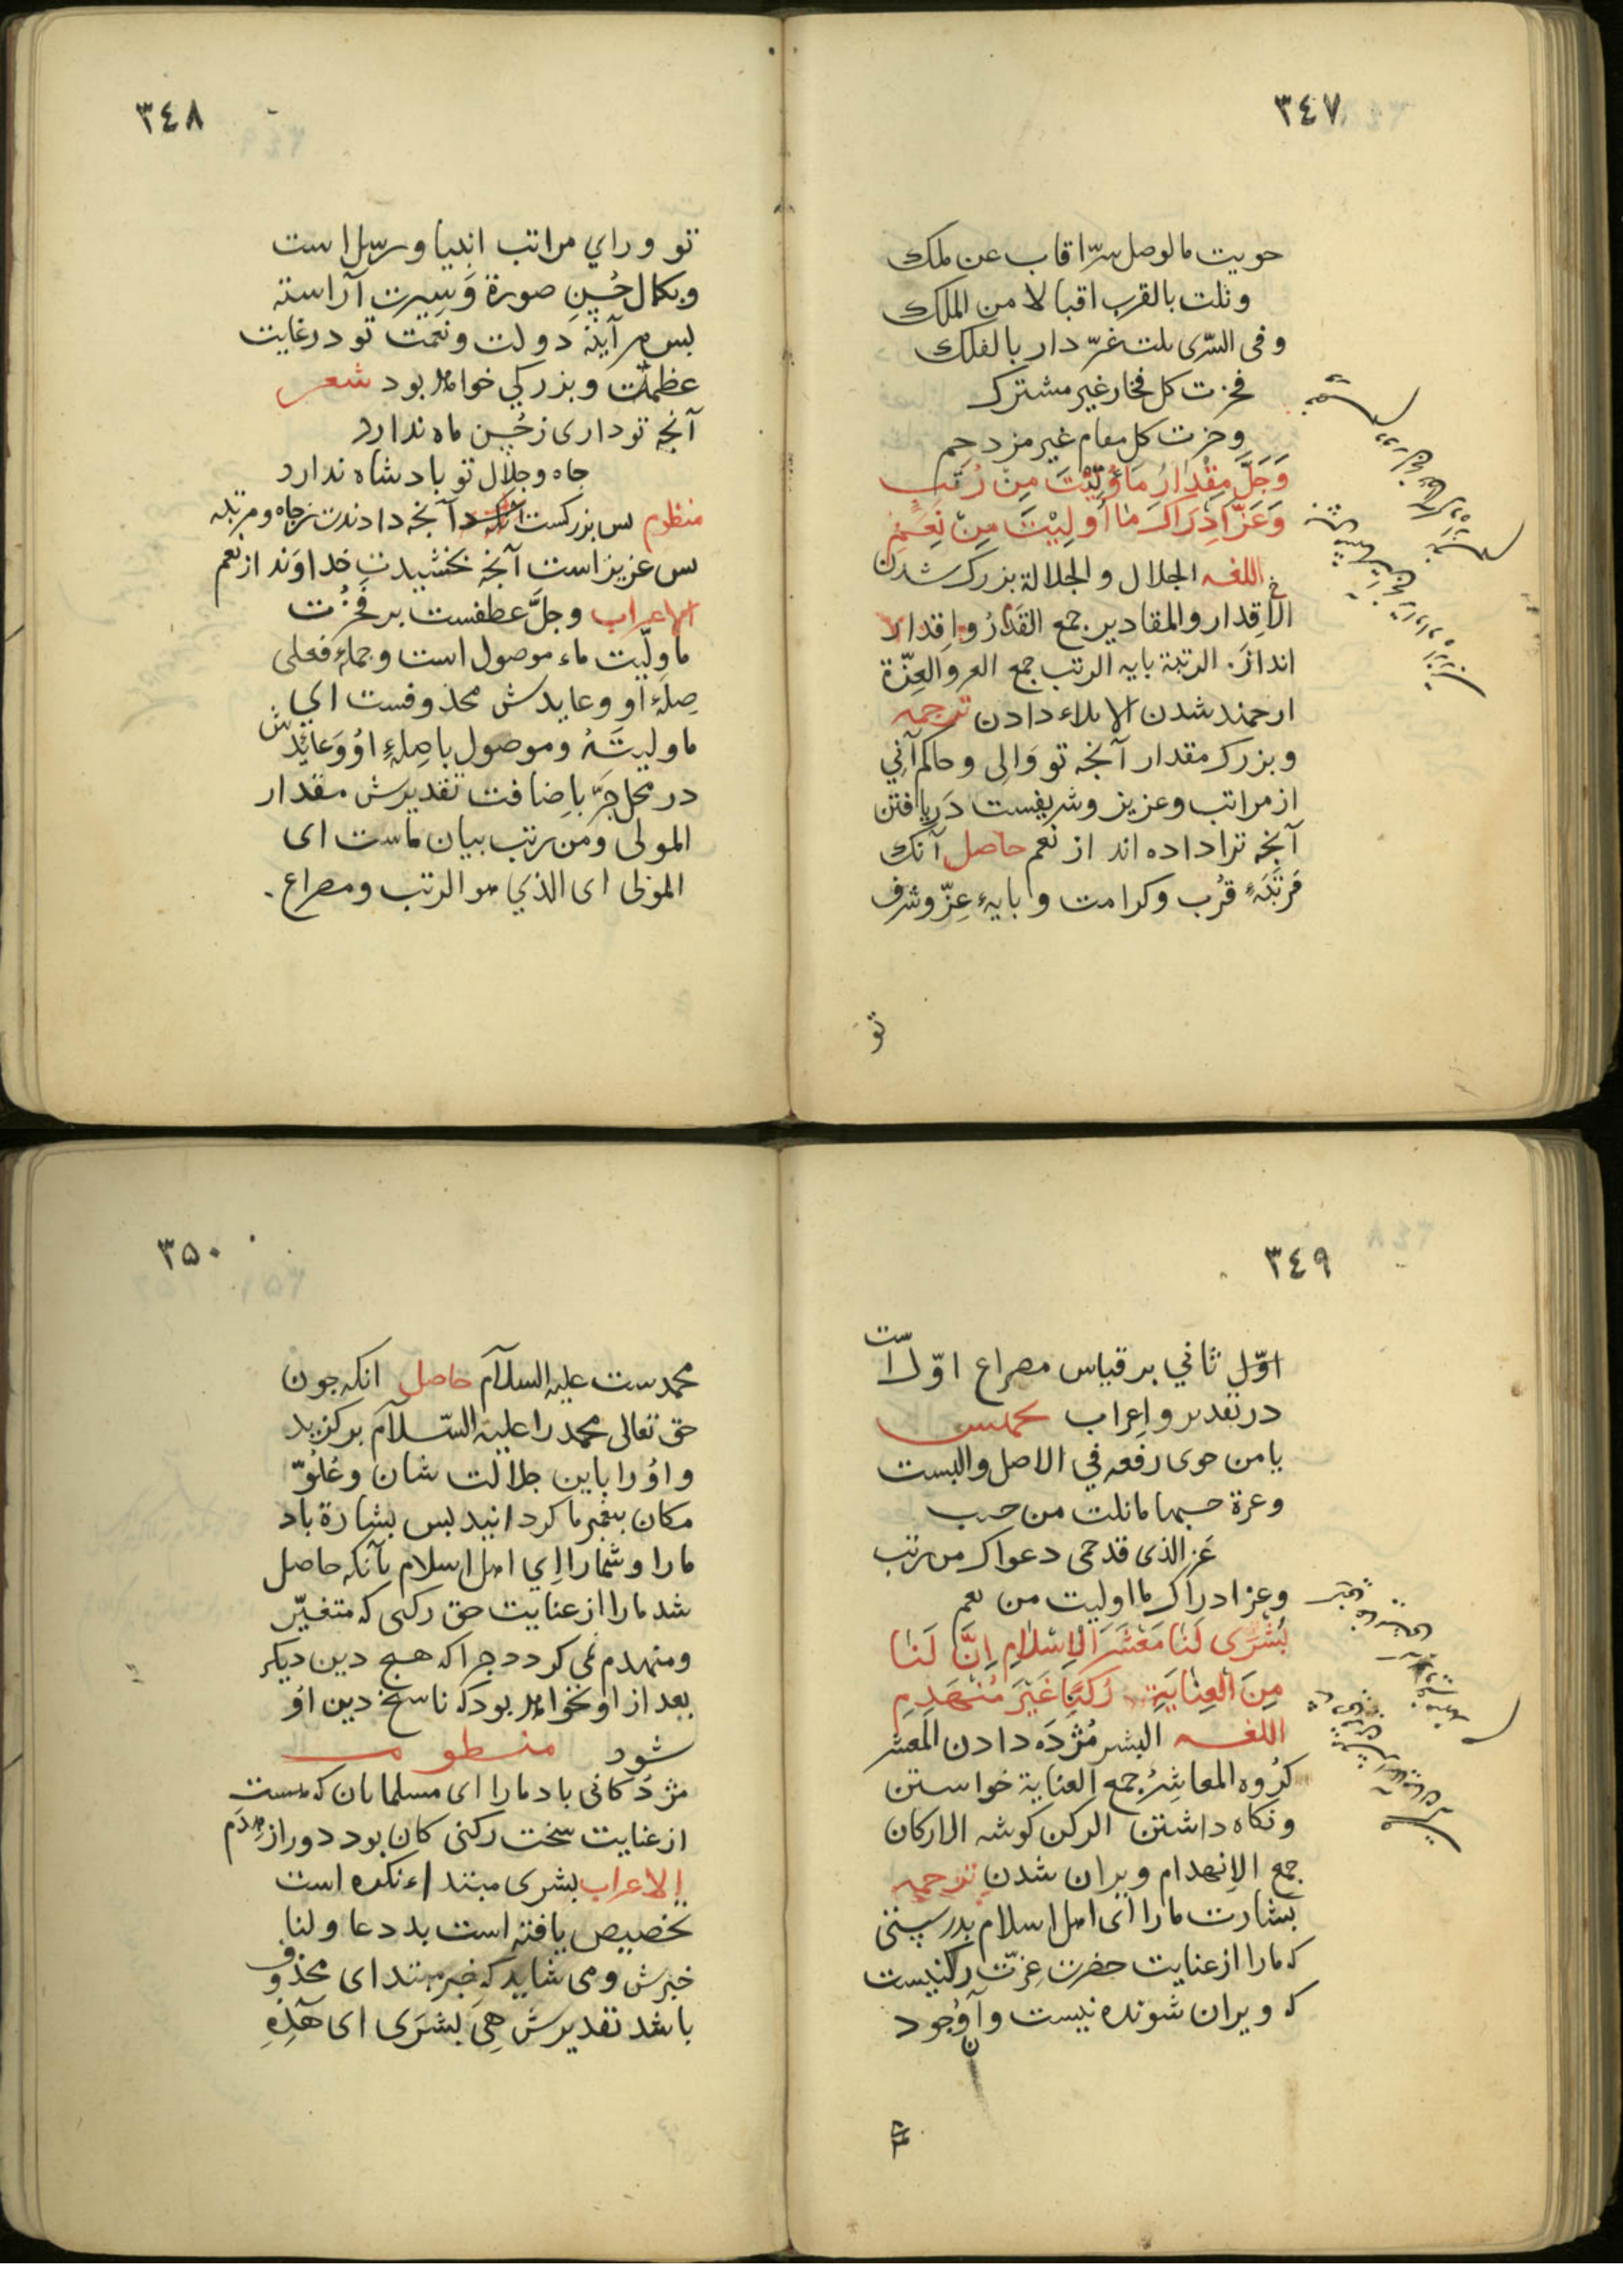 ٣٤٧
حويت مالوصل سرّا قاب عن ملك
ونلت بالقرب اقبالا من الملك
وفى السّرى نلت عزّ دار بالفلك
فحزت كل فخار غير مشترك
وحزت كل مقام غير مزدحم
وَجَلَّ مِقْدَارُ مَا وُلِّيْتَ مِنْ رُتَبٍ
وَعَزَّ اِدْرَاكُ مَا اُولِيْتَ مِنْ نِعَمِ
اللغه الجلال والجلالة بزرك شدن
الاقدار والمقادير جمع القَدْرُ واِقدار
اندازَ. الرتبة بايه الرتب جمع العز والعِزّة
ارجمند شدن الايلاء دادن ترجمه
وبزرك مقدار آنجه تو وَالِى وحاكم آنِي
از مراتب وعزيز وشريفست دَريافتن
آنجه ترا داده اند از نعم حاصل آنك
مَرتَبَهٔ قُرب وكرامت وبايهٔ عِزّ وشرف
تو
٣٤٨
تو وراي مراتب انبيا ورسل است
وبكمال حُسِن صورة وَسِيرت آراسته
بس هر آينه دولت ونعمت تو درغايت
عظمت وبزركي خواهد بود شعر
آنجه تو دارى زحُسِن ماه ندارد
جاه وجلال تو بادشاه ندارد
منظوم بس بزركست آنجه دادندت زجاه ومرتبه
بس عزيز است آنجه بخشيدت خداوَند از نعم
الاعراب وجلَّ عطفست بر فَحُزْت
ماوليّت ماء موصول است وجملهٔ فعلى
صِلهٔ او وعايدش محذوفست اي
ماوليتَهُ وموصول باصِلهٔ اوُ وَعائدش
در محل جَرّ باِضافت تقديرش مقدار
المولى ومن رتب بيان ماست اى
المولى اى الذي هو الرتب ومصراع .
٣٤٩
اوّل ثاني بر قياس مصراع اوّل است
در تقدير واِعراب تخميس
يامن حوى رفعه في الاصل والنسب
وعزة حسبها مانلت من حسب
عَز الذى قد حمى دعواك من رتب
وعز ادراك ما اوليت من نعم
بُشْرَى لَنَا مَعْشَرَ الْاِسْلَامِ اِنَّ لَنَا
مِنَ الْعِنَايَةِ رُكْنًا غَيْرَ مُنْهَدِمِ
اللغه البشر مُژدَه دادن المَعشر
كرُوه المعاشِرُ جمع العناية خواستن
ونكاه داشتن الركن كوشه الاركان
جمع الاِنهدام ويران شدن ترجمه
بشارت مارا اى اهل اسلام بدرستى
كه مارا از عنايت حضرت عِزّت ركنيست
كه ويران شونده نيست وآن وُجود
محمد
٣٥٠
محمدست عليه السلام حاصل انكه جون
حق تعالى محمد را عليه السّلام بركزيد
واوُرا باين جلالت شان وعُلوّ
مكان بيغمبر ما كردانيد بس بشارة باد
مارا وشمارا اي اهل اسلام بآنكه حاصل
شد مارا از عنايت حق ركنى كه متغيّر
ومنهدم نمى كردد جراكه هيج دين ديكر
بعد از او نخواهد بود كه ناسخ دين اوُ
شود منظومه
مژدكانى باد مارا اى مسلمانان كه هست
از عنايت سخت ركنى كان بود دور از هِدَم
الاعراب بشرى مبتداء نكره است
تخصيص يافته است بددعا ولنا
خبرش ومى شايد كه خبر مبتداى محذوف
باشد تقديرش هِيَ بُشرَى اى هَذِهِ